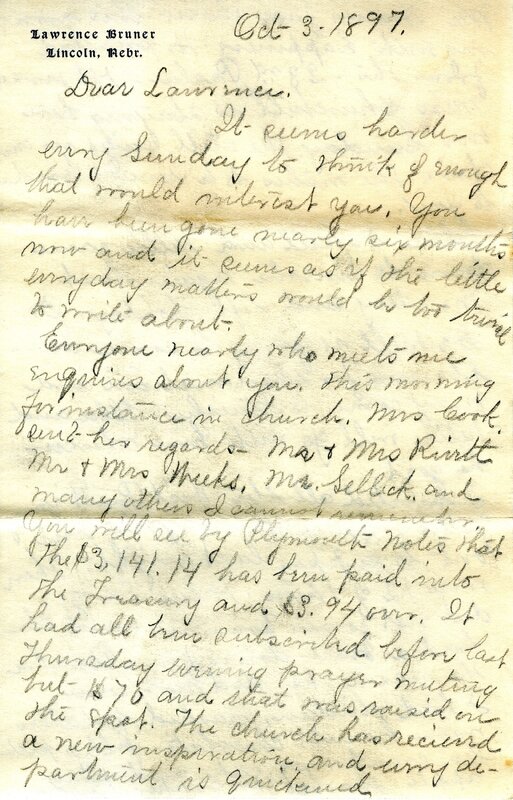 Lawrence Bruner
Lincoln, Nebr.
Oct 3 - 1897.
Dear Lawrence.
It seems harder
every Sunday to think of enough
that would interest you. You
have been gone nearly six months
now and it seems as if the little
everyday matters would be too trivial
to write about.
Everyone nearly who meets me
enquires about you. This morning
for instance in church. Mrs Cook.
sent her regards - Mr & Mrs
Mr & Mrs Weeks, Mr. Sellick, and
many others I cannot remember.
You will see by Plymouth Notes that
The $3,141.14 has been paid into
the Treasury and $3.94 over. It
had all been subscribed before last
Thursday evening prayer meeting
but $70 and that was raised on
the spot. The church has recieved
a new inspiration, and every de-
partment is quickened